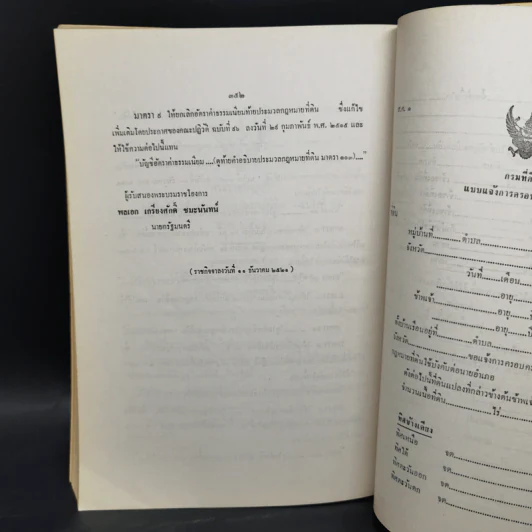 ๓๕๒
มาตรา ๙ ให้ยกเลิกอัตราค่าธรรมเนียมท้ายประมวลกฎหมายที่ดิน ซึ่งแก้ไข
เพิ่มเติมโดยประกาศของคณะปฏิวัติ ฉบับที่ ๙๖ ลงวันที่ ๒๙ กุมภาพันธ์ พ.ศ. ๒๕๑๕ และ
ให้ใช้ความต่อไปนี้แทน
"บัญชีอัตราค่าธรรมเนียม....(ดูท้ายคำอธิบายประมวลกฎหมายที่ดิน มาตรา ๑๐๓)...."
ผู้รับสนองพระบรมราชโองการ
พลเอก เกรียงศักดิ์ ชมะนันทน์
นายกรัฐมนตรี
(ราชกิจจาลงวันที่ ๑๑ ธันวาคม ๒๕๒๑)
ส.ค. ๑
กรมที่ดิ
แบบแจ้งการครอบ
หมู่บ้านที่..........ตำบล..........
จังหวัด..........
วันที่......เดือน..........
..........อายุ......ปี
ข้าพเจ้า..........อายุ......ปี
..........อายุ......ปี
ตั้งบ้านเรือนอยู่ที่..........ตำบล..........
จังหวัด..........ขอแจ้งการครอบค
กฎหมายที่ดินใช้บังคับต่อนายอำเภอ
ดังต่อไปนี้ที่ดินแปลงที่กล่าวข้างต้นข้าพเจ้
จำนวนเนื้อที่ดิน..........ไร่..........
ทิศข้างเคียง
ทิศเหนือ จด..........
ทิศใต้ จด..........
ทิศตะวันออก จด..........
ทิศตะวันตก จด..........